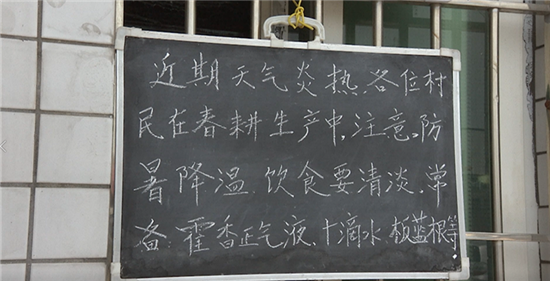 近期天气炎热,各位村
民在春耕生产中,注意防
暑降温.饮食要清淡.常
备:霍香正气液、十滴水 板蓝根等.